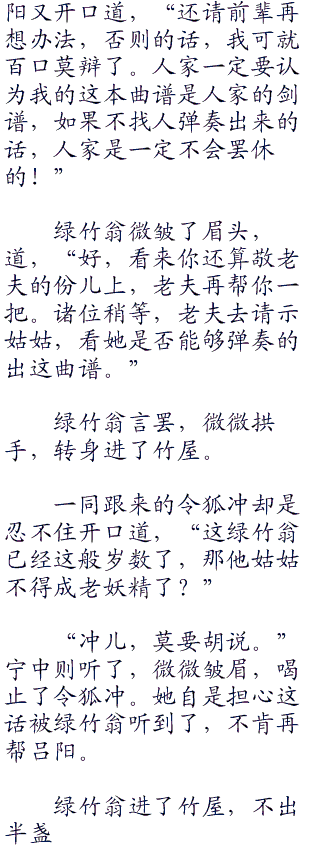 阳又开口道，“还请前辈再
想办法，否则的话，我可就
百口莫辩了。人家一定要认
为我的这本曲谱是人家的剑
谱，如果不找人弹奏出来的
话，人家是一定不会罢休
的！”
绿竹翁微皱了眉头，
道，“好，看来你还算敬老
夫的份儿上，老夫再帮你一
把。诸位稍等，老夫去请示
姑姑，看她是否能够弹奏的
出这曲谱。”
绿竹翁言罢，微微拱
手，转身进了竹屋。
一同跟来的令狐冲却是
忍不住开口道，“这绿竹翁
已经这般岁数了，那他姑姑
不得成老妖精了？”
“冲儿，莫要胡说。”
宁中则听了，微微皱眉，喝
止了令狐冲。她自是担心这
话被绿竹翁听到了，不肯再
帮吕阳。
绿竹翁进了竹屋，不出
半盏